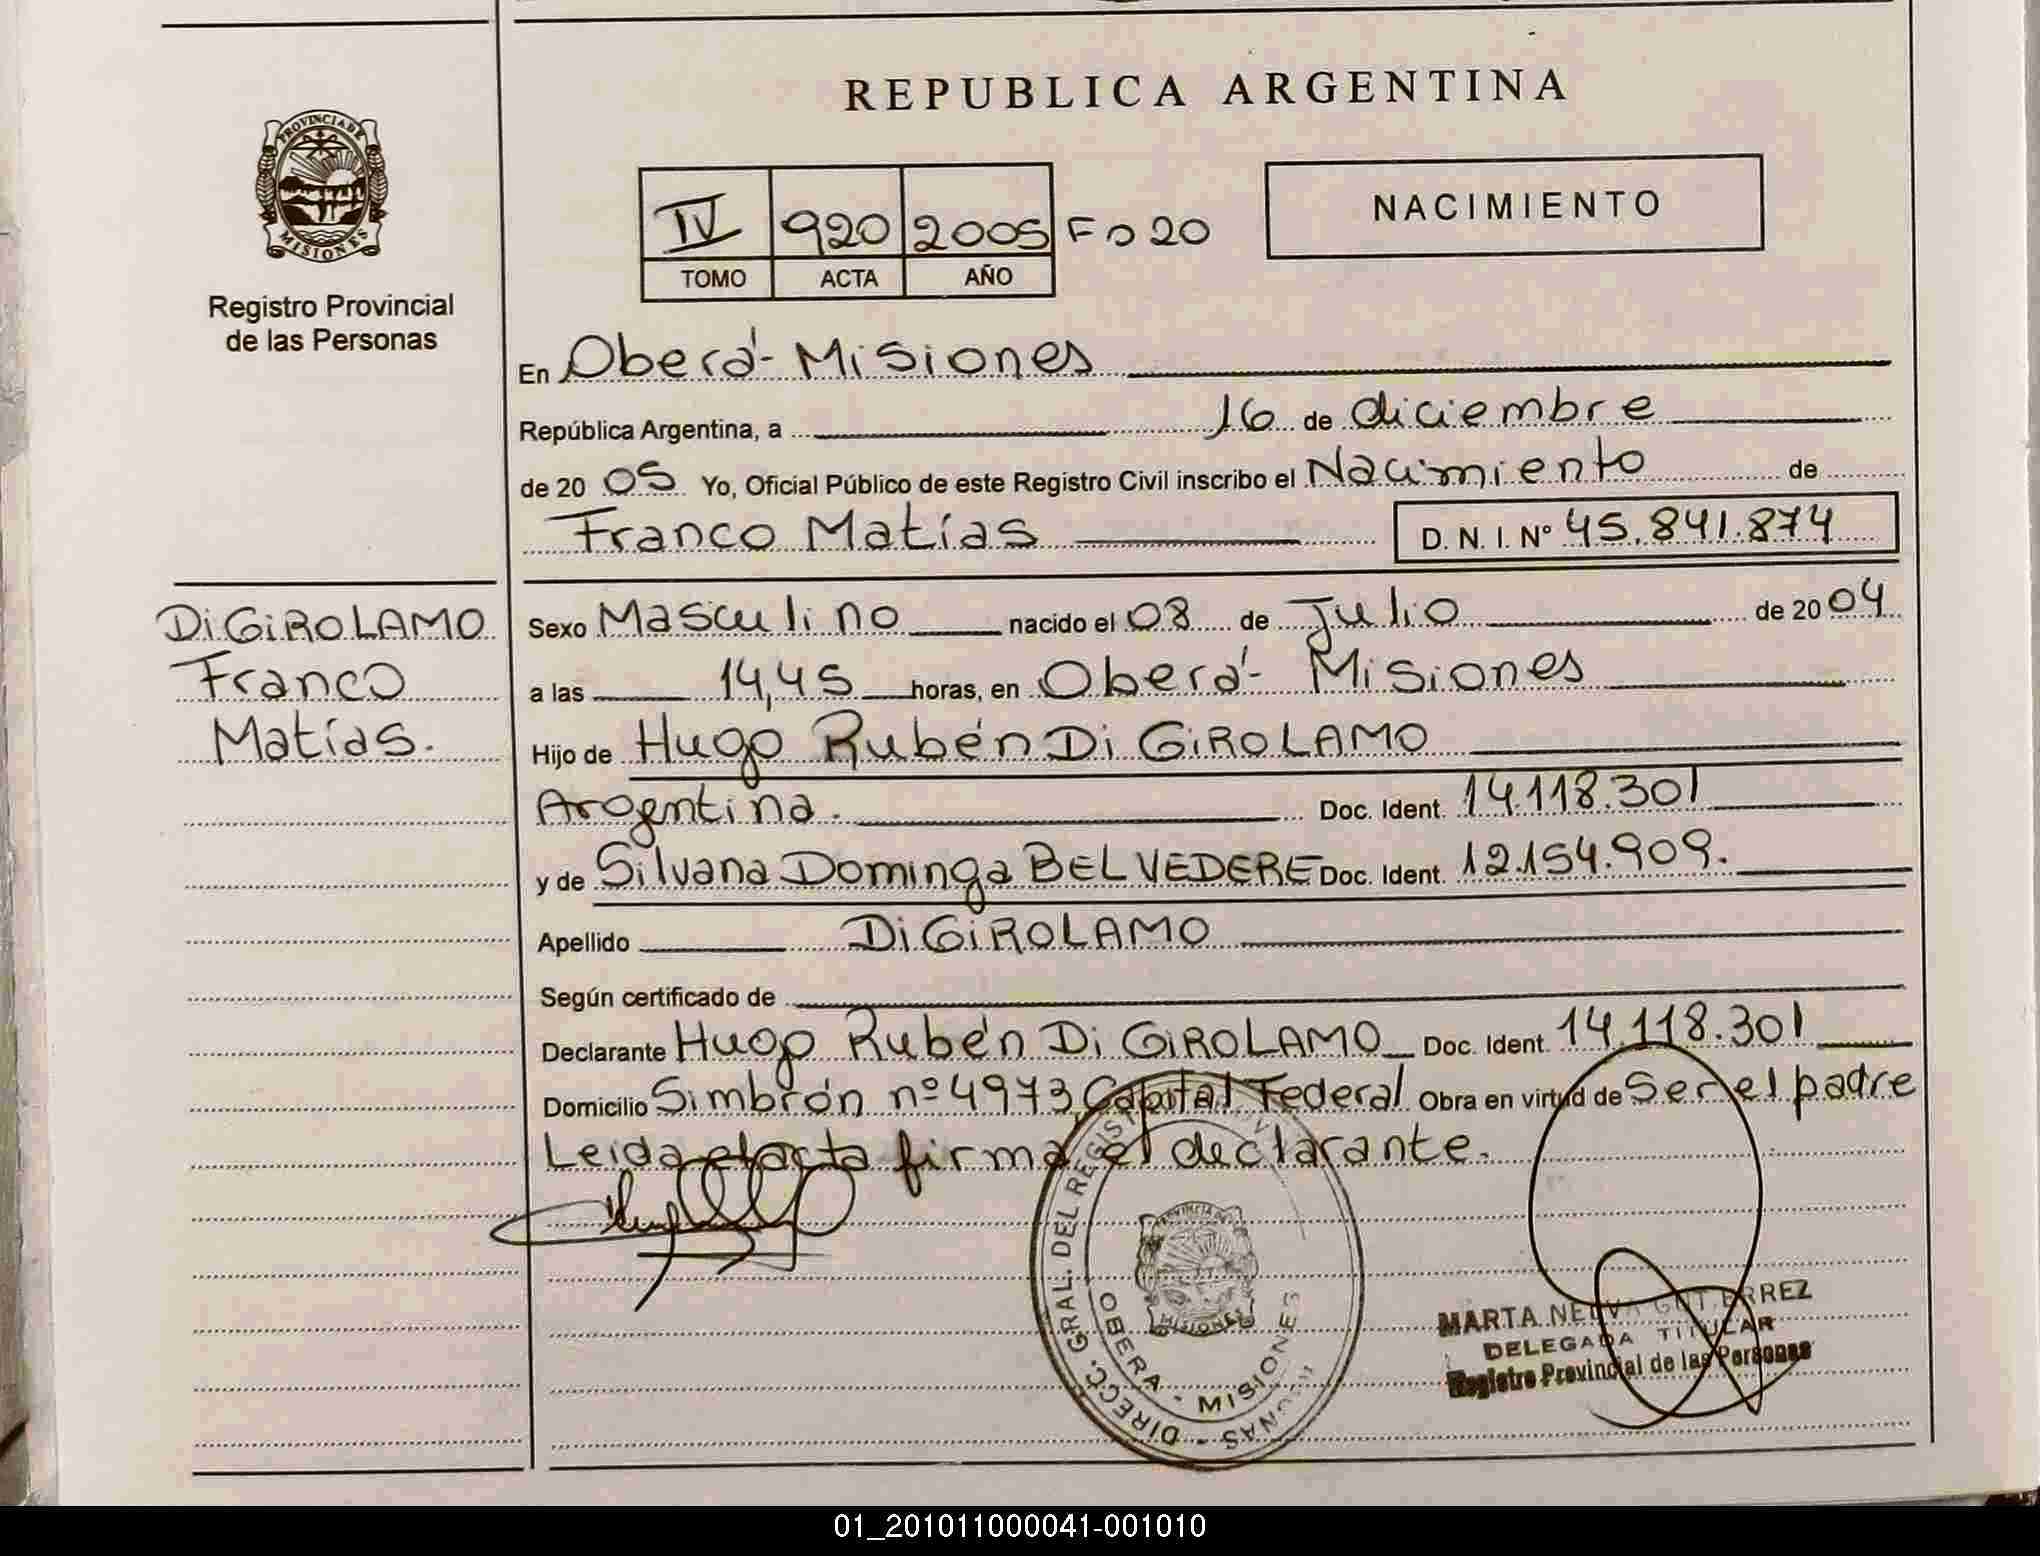 REPUBLICA ARGENTINA
PROVINCIA DE
MISIONES
Registro Provincial
de las Personas
IV 920 2005 Fo 20
TOMO ACTA AÑO
NACIMIENTO
En Oberá - Misiones
República Argentina, a 16 de diciembre
de 20 05 Yo, Oficial Público de este Registro Civil inscribo el Nacimiento de
Franco Matías D. N. I. Nº 45.841.874
DiGiROLAMO
Franco
Matías.
Sexo Masculino nacido el 08 de Julio de 20 04
a las 14,45 horas, en Oberá - Misiones
Hijo de Hugo Rubén Di GiROLAMO
Argentina. Doc. Ident. 14.118.301
y de Silvana Dominga BELVEDERE Doc. Ident. 12.154.909.
Apellido DiGiROLAMO
Según certificado de
Declarante Hugo Rubén Di GiROLAMO Doc. Ident. 14.118.301
Domicilio Simbrón nº 4973, Capital Federal Obra en virtud de Ser el padre
Leida el acta firma el declarante.
DIRECC. GRAL. DEL REGIST
OBERA - MISIONES
PROVINCIA DE
MISIONES
MARTA NELVA GUTIERREZ
DELEGADA TITULAR
Registro Provincial de las Personas
01_201011000041-001010